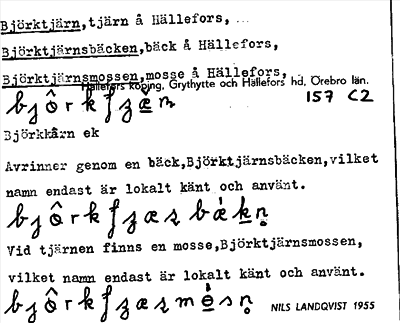 Björktjärn,tjärn å Hällefors,
Björktjärnsbäcken,bäck å Hällefors,
Björktjärnsmossen,mosse å Hällefors,
Hällefors köping, Grythytte och Hällefors hd, Örebro län.
157 C2
Björkkårn ek
Avrinner genom en bäck,Björktjärnsbäcken,vilket
namn endast är lokalt känt och använt.
Vid tjärnen finns en mosse,Björktjärnsmossen,
vilket namn endast är lokalt känt och använt.
NILS LANDQVIST 1955